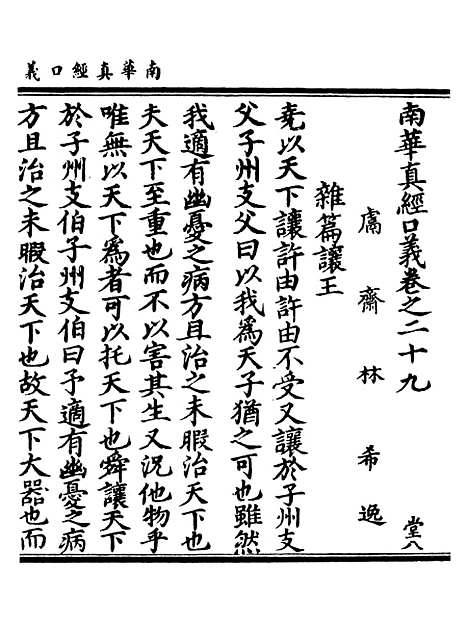 南華真經口義
南華真經口義卷之二十九 堂八
鬳齋林希逸
雜篇讓王
堯以天下讓許由許由不受又讓於子州支
父子州支父曰以我爲天子猶之可也雖然
我適有幽憂之病方且治之未暇治天下也
夫天下至重也而不以害其生又況他物乎
唯無以天下爲者可以托天下也舜讓天下
於子州支伯子州支伯曰予適有幽憂之病
方且治之未暇治天下也故天下大器也而